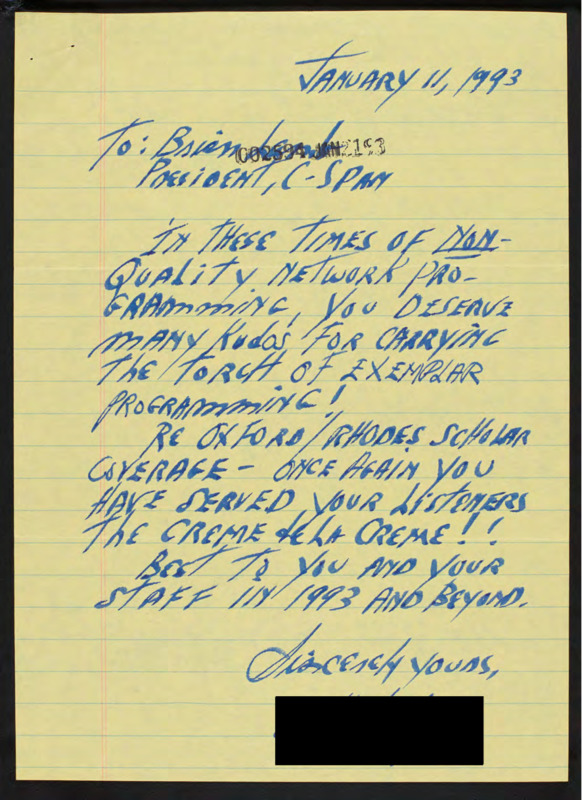 JANUARY 11, 1993
To: Brian Lamb
002594 JAN 21 93
PRESIDENT, C-SPAN
IN THESE TIMES OF NON-
QUALITY NETWORK PRO-
GRAMMING, YOU DESERVE
MANY KUDOS FOR CARRYING
THE TORCH OF EXEMPLAR
PROGRAMMING!
RE OXFORD/RHODES SCHOLAR
COVERAGE - ONCE AGAIN YOU
HAVE SERVED YOUR LISTENERS
THE CREME de LA CREME!!
BEST TO YOU AND YOUR
STAFF IN 1993 AND BEYOND.
Sincerely yours,